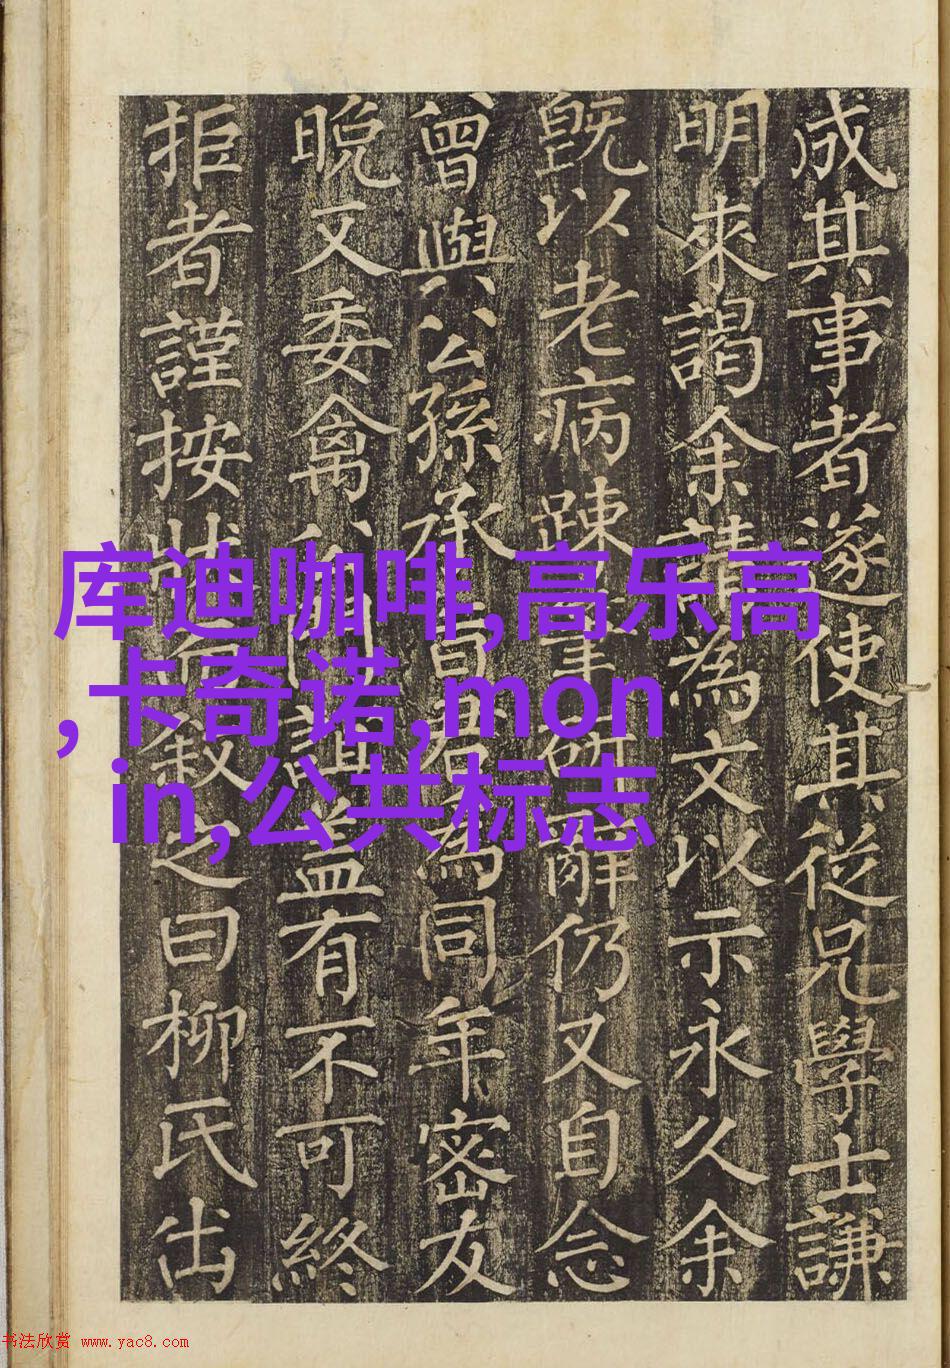 成其事者遂使其從兄學士謙
明來謁余請為文以示永久余
既以老病踈筆研辭仍又自念
曾與公孫承旨君為同年密友
晚又委禽公門誼蓋有不可終
拒者謹按狀叙之曰柳氏出
库迪咖啡,高乐高
,卡奇诺,mon
in,公共标志
书法欣赏 www.yac8.com